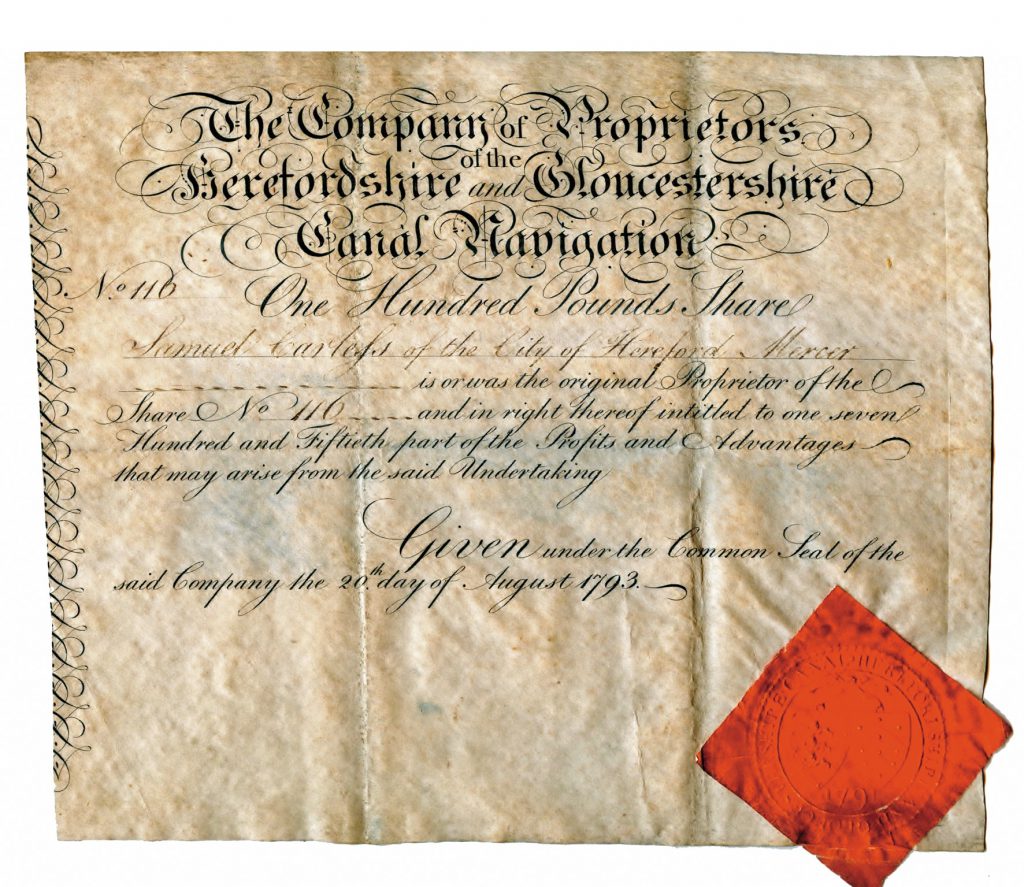 The Company of Proprietors
of the
Herefordshire and Gloucestershire
Canal Navigation
No 116
One Hundred Pounds Share
Samuel Carless of the City of Hereford Mercer
is or was the original Proprietor of the
Share No 116 and in right thereof intitled to one seven
Hundred and Fiftieth part of the Profits and Advantages
that may arise from the said Undertaking
Given under the Common Seal of the
said Company the 20th. day of August 1793.